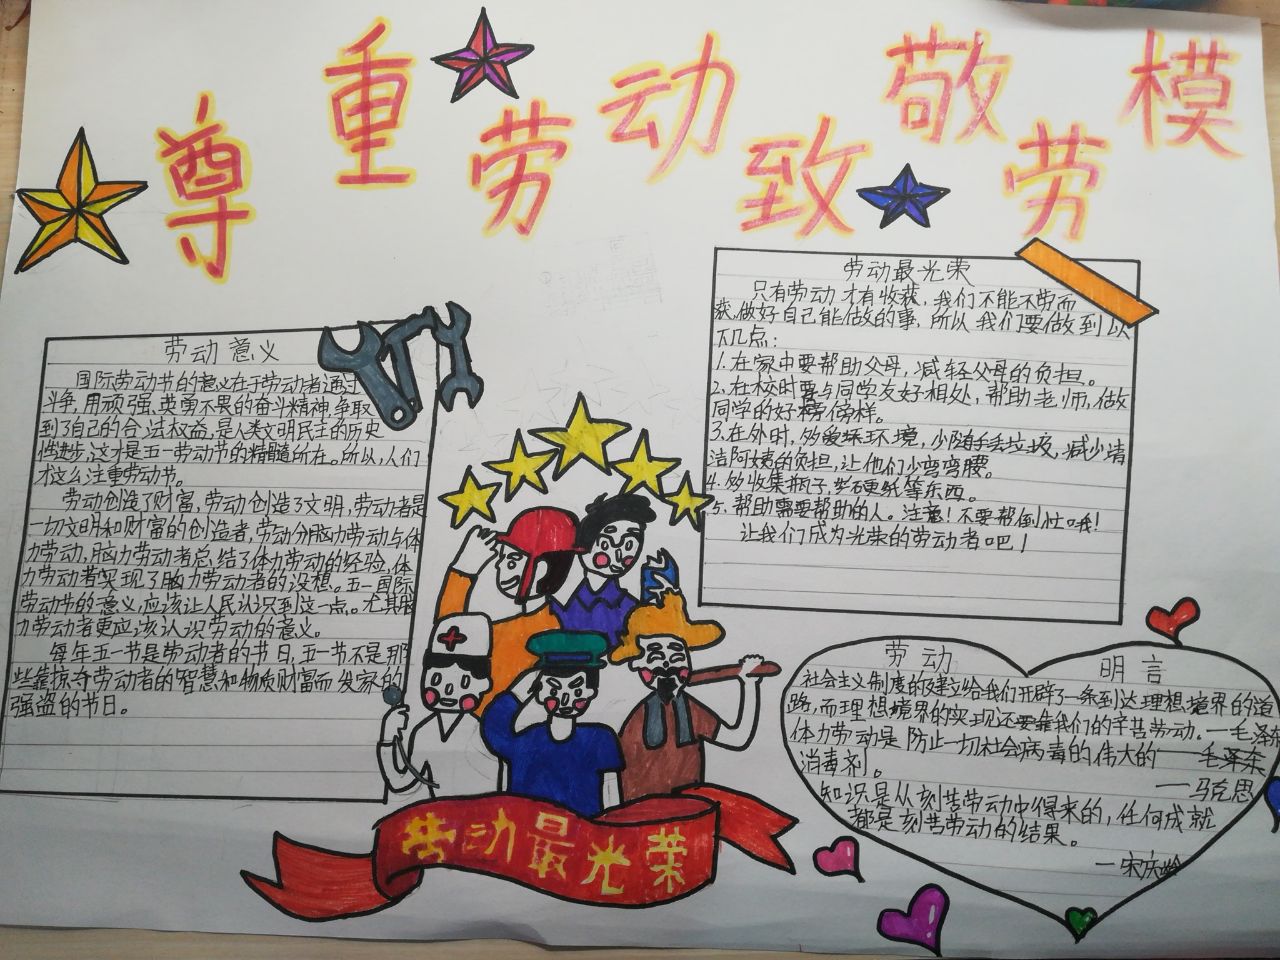 尊重劳动致敬劳模
劳动意义
国际劳动节的意义在于劳动者通过
斗争,用顽强、英勇不畏的奋斗精神,争取
到了自己的合法权益,是人类文明民主的历史
性进步,这才是五一劳动节的精髓所在。所以,人们
才这么注重劳动节。
劳动创造了财富,劳动创造了文明,劳动者是
一切文明和财富的创造者,劳动分脑力劳动与体
力劳动,脑力劳动者总结了体力劳动的经验,体
力劳动者实现了脑力劳动者的设想。五一国际
劳动节的意义,应该让人民认识到这一点。尤其脑
力劳动者更应该认识劳动的意义。
每年五一节是劳动者的节日,五一节不是那
些靠掠夺劳动者的智慧和物质财富而发家的
强盗的节日。
劳动最光荣
只有劳动才有收获,我们不能不劳而
获,做好自己能做的事,所以我们要做到以
下几点:
1.在家中要帮助父母,减轻父母的负担。
2.在校时要与同学友好相处,帮助老师,做
同学的好榜样。
3.在外时,多爱环境,少随手丢垃圾,减少清
洁阿姨的负担,让他们少弯弯腰。
4.多收集瓶子,硬纸等东西。
5.帮助需要帮助的人。注意!不要帮倒忙哦!
让我们成为光荣的劳动者吧!
劳动最光荣
劳动 明言
社会主义制度的建立给我们开辟了一条到达理想境界的道
路,而理想境界的实现还要靠我们的辛苦劳动。—毛泽东
体力劳动是防止一切社会病毒的伟大的
消毒剂。
—马克思
知识是从刻苦劳动中得来的,任何成就
都是刻苦劳动的结果。
—宋庆龄